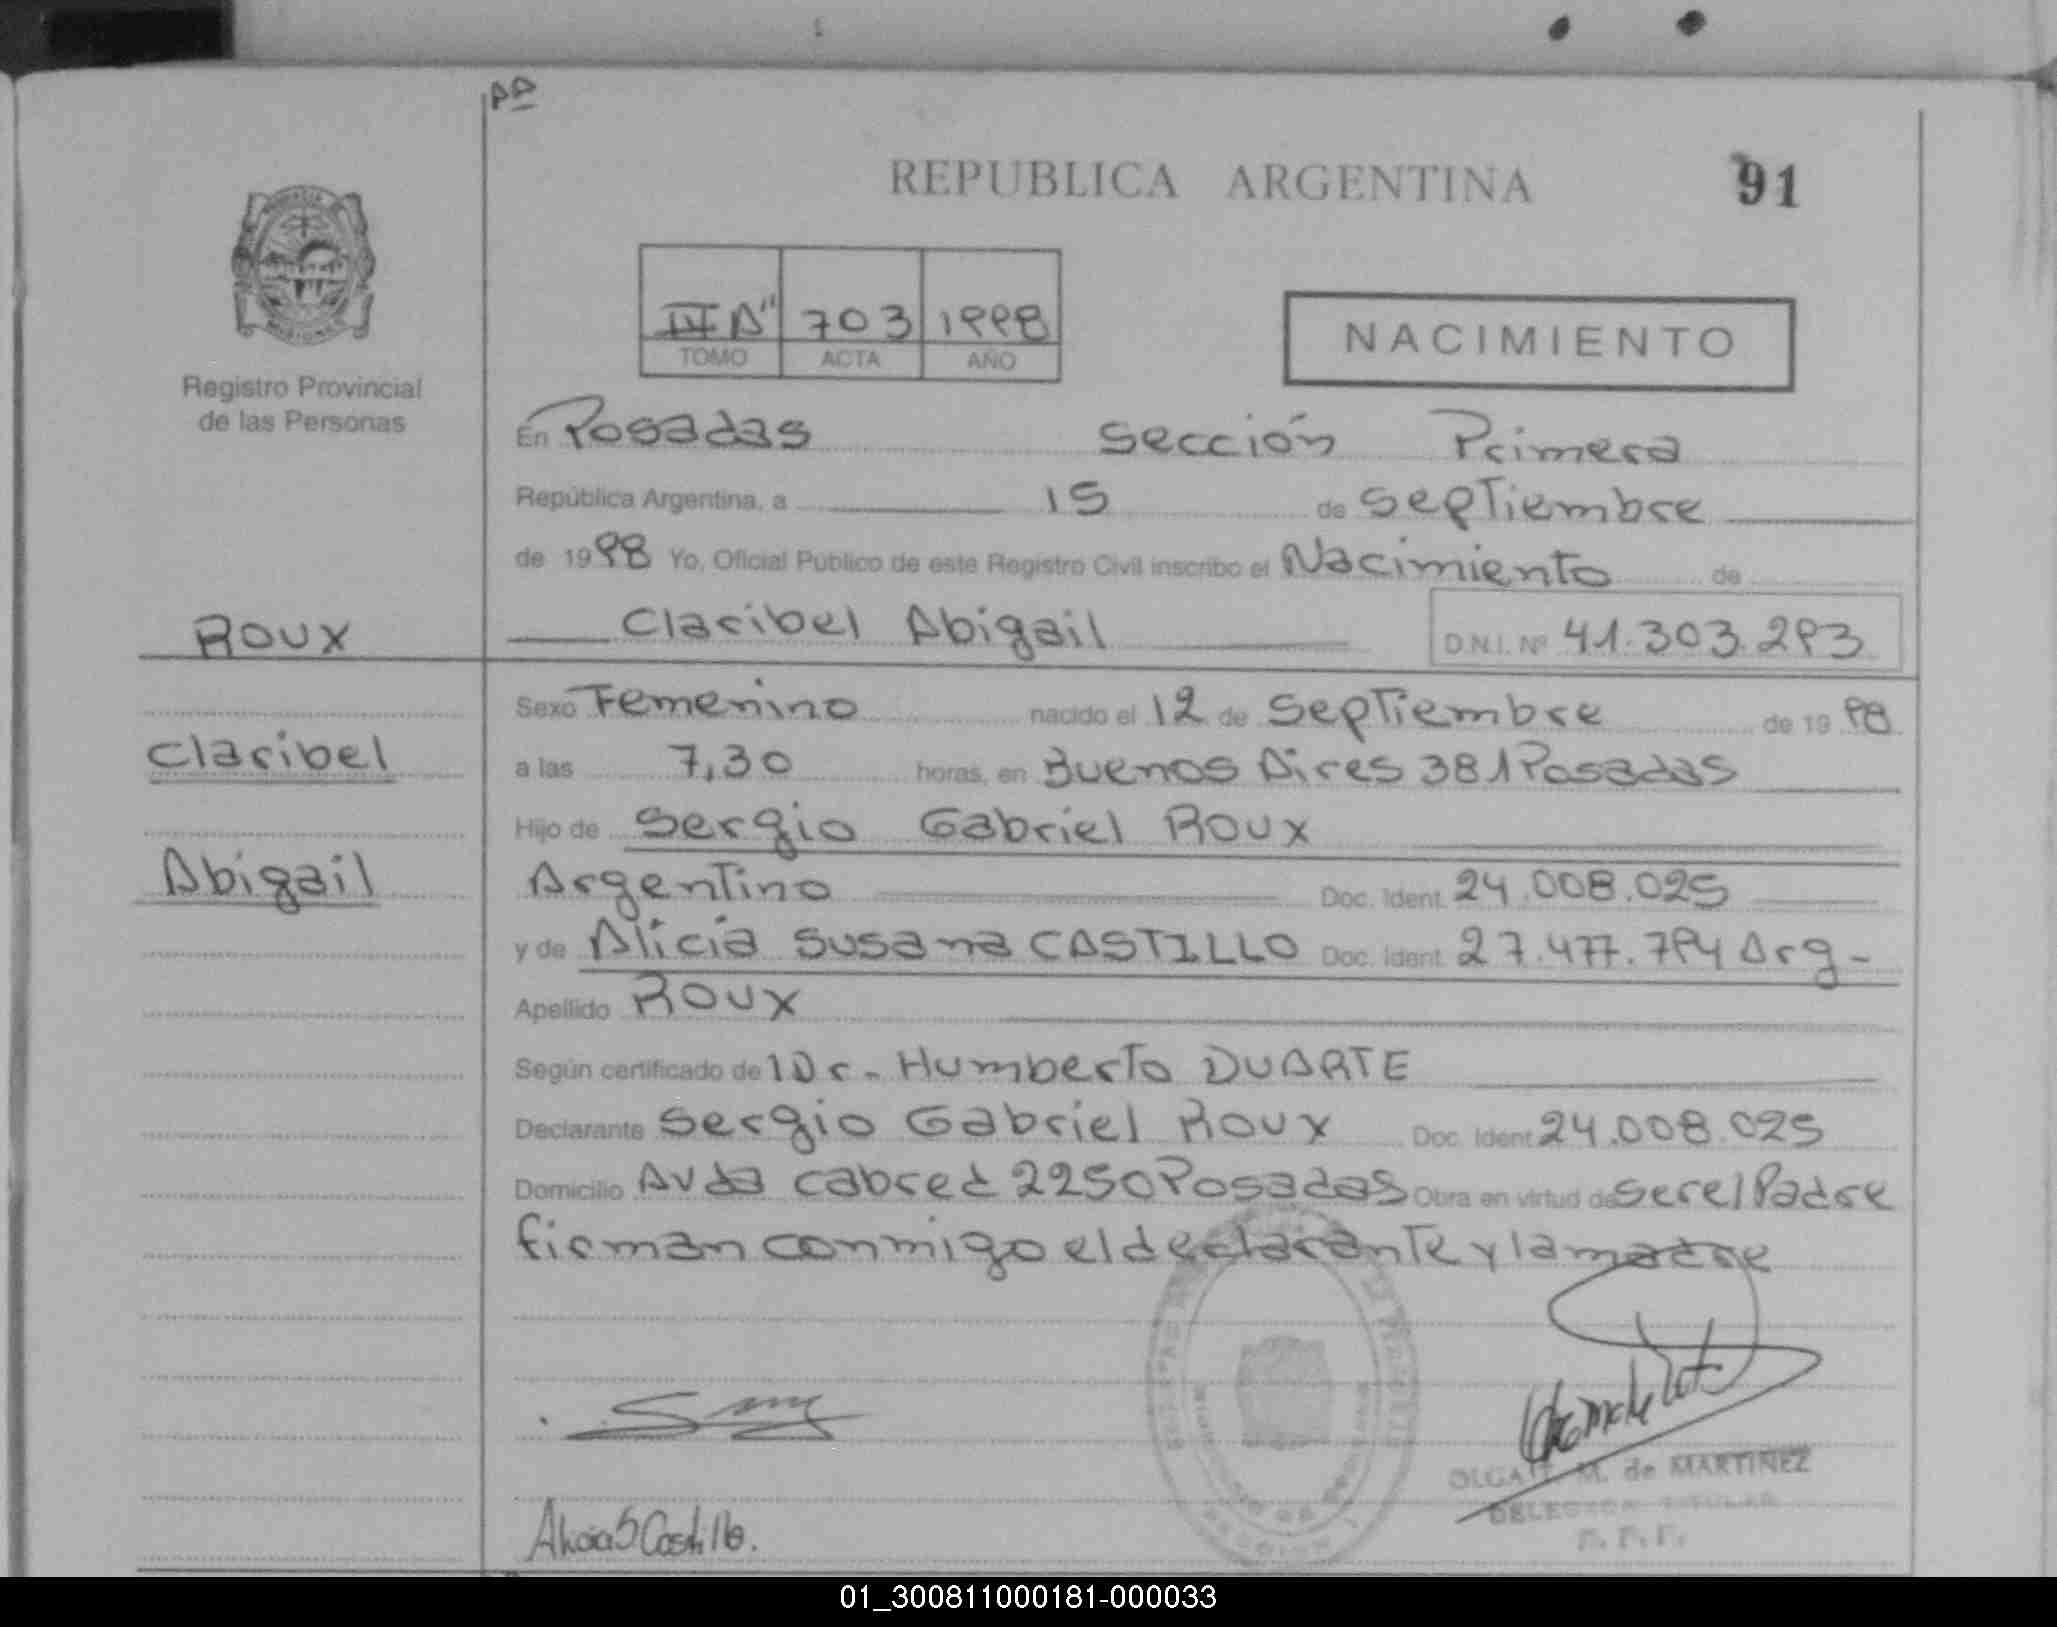 REPUBLICA ARGENTINA 91
IV A" 703 1998
TOMO ACTA AÑO
NACIMIENTO
Registro Provincial
de las Personas
En Posadas Sección Primera
República Argentina, a 15 de Septiembre
de 1998 Yo, Oficial Público de este Registro Civil inscribo el Nacimiento de
ROUX
Claribel Abigail D.N.I. Nº 41.303.293
Sexo Femenino nacido el 12 de Septiembre de 1998
Claribel
a las 7,30 horas, en Buenos Aires 381 Posadas
Hijo de Sergio Gabriel ROUX
Abigail
Argentino Doc. Ident. 24.008.025
y de Alicia Susana CASTILLO Doc. Ident. 27.477.794 Arg-
Apellido ROUX
Según certificado de l Dr. Humberto DUARTE
Declarante Sergio Gabriel Roux Doc. Ident. 24.008.025
Domicilio Avda Cabred 2250 Posadas Obra en virtud de ser el Padre
firman conmigo el declarante y la madre
Alicia S Castillo.
OLGA M. de MARTINEZ
DELEGADA TITULAR
01_300811000181-000033